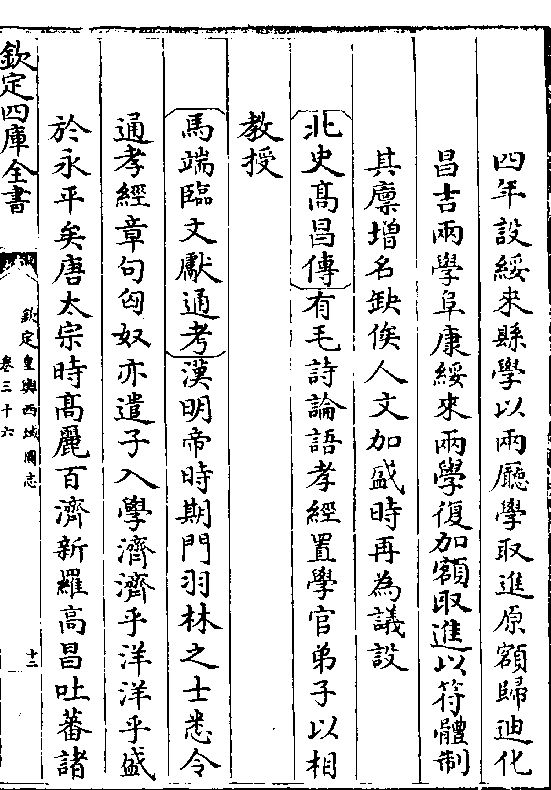 四年設綏來縣學以兩廳學取進原額歸迪化
昌吉兩學阜康綏來兩學復加額取進以符體制
其廩增名缺俟人文加盛時再為議設
北史髙昌傳有毛詩論語孝經置學官弟子以相
教授
馬端臨文獻通考漢明帝時期門羽林之士悉令
通孝經章句匈奴亦遣子入學濟濟乎洋洋乎盛
於永平矣唐太宗時髙麗百濟新羅高昌吐蕃諸
欽定四庫全書
欽定皇輿西域圖志
卷三十六
十三